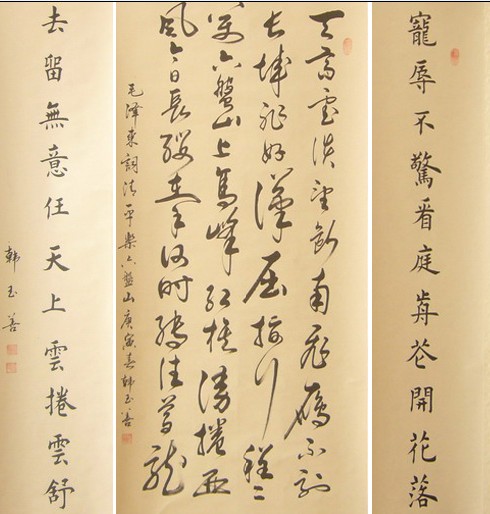 寵辱不驚看庭前花開花落
天高雲淡望斷南飛雁不到
長城非好漢屈指行程二
萬六盤山上高峰紅旗漫捲西
風今日長纓在手何時縛住蒼龍
毛澤東詞清平樂六盤山庚寅春韓玉善
去留無意任天上雲捲雲舒
韓玉善